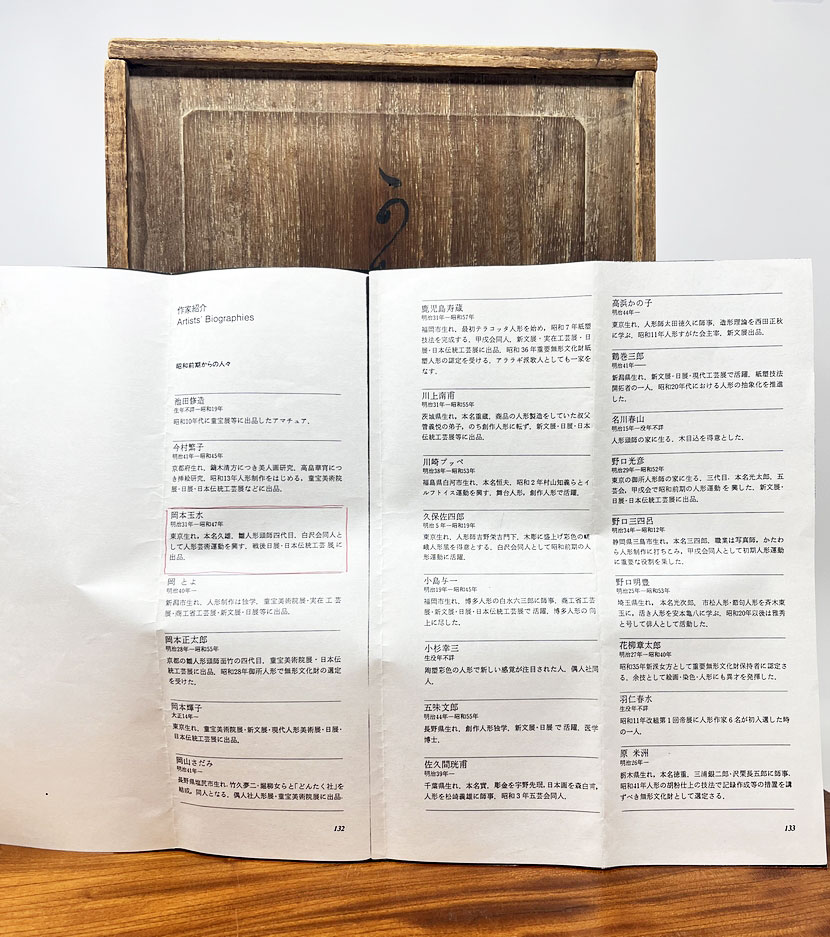 作家紹介
Artists' Biographies
昭和前期からの人々
池田修造
生年不詳―昭和19年
昭和10年代に童宝展等に出品したアマチュア。
今村繁子
明治41年―昭和45年
京都府生れ、鏑木清方につき美人画研究、高畠華宵につ
き挿絵研究、昭和13年人形制作をはじめる。童宝美術院
展・日展・日本伝統工芸展などに出品。
岡本玉水
明治31年―昭和47年
東京生れ。本名久雄、雛人形頭師四代目、白沢会同人と
して人形芸術運動を興す、戦後日展・日本伝統工芸展に
出品。
岡 とよ
明治40年―
新潟市生れ、人形制作は独学、童宝美術院展・実在工芸
展・商工省工芸展・新文展・日展等に出品。
岡本正太郎
明治28年―昭和55年
京都の雛人形頭師面竹の四代目、童宝美術院展・日本伝
統工芸展に出品、昭和28年御所人形で無形文化財の選定
を受けた。
岡本輝子
大正14年―
東京生れ、童宝美術院展・新文展・現代人形美術展・日展・
日本伝統工芸展に出品。
岡山さだみ
明治41年―
長野県塩尻市生れ、竹久夢二・堀柳女らと「どんたく社」を
結成。同人となる、偶人社人形展・童宝美術院展に出品。
132
鹿児島寿蔵
明治31年―昭和57年
福岡市生れ、最初テラコッタ人形を始め、昭和7年紙塑
技法を完成する、甲戌会同人、新文展・実在工芸展・日
展・日本伝統工芸展に出品、昭和36年重要無形文化財紙
塑人形の認定を受ける、アララギ派歌人としても一家を
なす。
川上南甫
明治31年―昭和55年
茨城県生れ。本名重蔵、商品の人形製造をしていた叔父
菅義悦の弟子、のち創作人形に転ず、新文展・日展・日本
伝統工芸展に出品。
川崎プッペ
明治38年―昭和53年
福島県白河市生れ、本名恒夫、昭和2年村山知義らとイ
ルフトイス運動を興す、舞台人形、創作人形で活躍。
久保佐四郎
明治5年―昭和19年
東京生れ、人形師吉野栄吉門下、木彫に盛上彩色の嵯
峨人形風を得意とする、白沢会同人として昭和前期の人
形運動に活躍。
小島与一
明治19年―昭和45年
福岡市生れ、博多人形の白水六三郎に師事、商工省工芸
展・新文展・日展・日本伝統工芸展で活躍、博多人形の向
上に尽した。
小杉幸三
生没年不詳
陶塑彩色の人形で新しい感覚が注目された人、偶人社同
人。
五味文郎
明治44年―昭和55年
長野県生れ、創作人形独学、新文展・日展で活躍、医学
博士。
佐久間胱甫
明治39年―
千葉県生れ、本名實、彫金を宇野先珉、日本画を森白甫、
人形を松崎義雄に師事、昭和3年五芸会同人。
高浜かの子
明治44年―
東京生れ、人形師太田徳久に師事、造形理論を西田正秋
に学ぶ、昭和11年人形すがた会主宰、新文展出品。
鶴巻三郎
明治41年―
新潟県生れ、新文展・日展・現代工芸展で活躍、紙塑技法
開拓者の一人、昭和20年代における人形の抽象化を推進
した。
名川春山
明治15年―没年不詳
人形頭師の家に生る、木目込を得意とした。
野口光彦
明治29年―昭和52年
東京の御所人形師の家に生る、三代目、本名光太郎、五
芸会、甲戌会で昭和前期の人形運動を興した、新文展・
日展・日本伝統工芸展に出品。
野口三四呂
明治34年―昭和12年
静岡県三島市生れ、本名三四郎、職業は写真師。かたわ
ら人形制作に打ちこみ、甲戌会同人として初期人形運動
に重要な役割を果した。
野口明豊
明治25年―昭和53年
埼玉県生れ、本名光次郎、市松人形・着句人形を斉木東
玉に。活き人形を安本亀八に学ぶ、昭和20年以後は雅秀
と号して俳人として活動した。
花柳章太郎
明治27年―昭和40年
昭和35年新派女方として重要無形文化財保持者に認定さ
る、余技として絵画・染色・人形にも異才を発揮した。
羽仁春水
生没年不詳
昭和11年改組第1回帝展に人形作家6名が初入選した時
の一人。
原 米洲
明治26年―
栃木県生れ。本名徳重、三浦銀二郎・沢栗長五郎に師事、
昭和41年人形の胡粉仕上の技法で記録作成等の措置を講
ずべき無形文化財として選定さる。
133